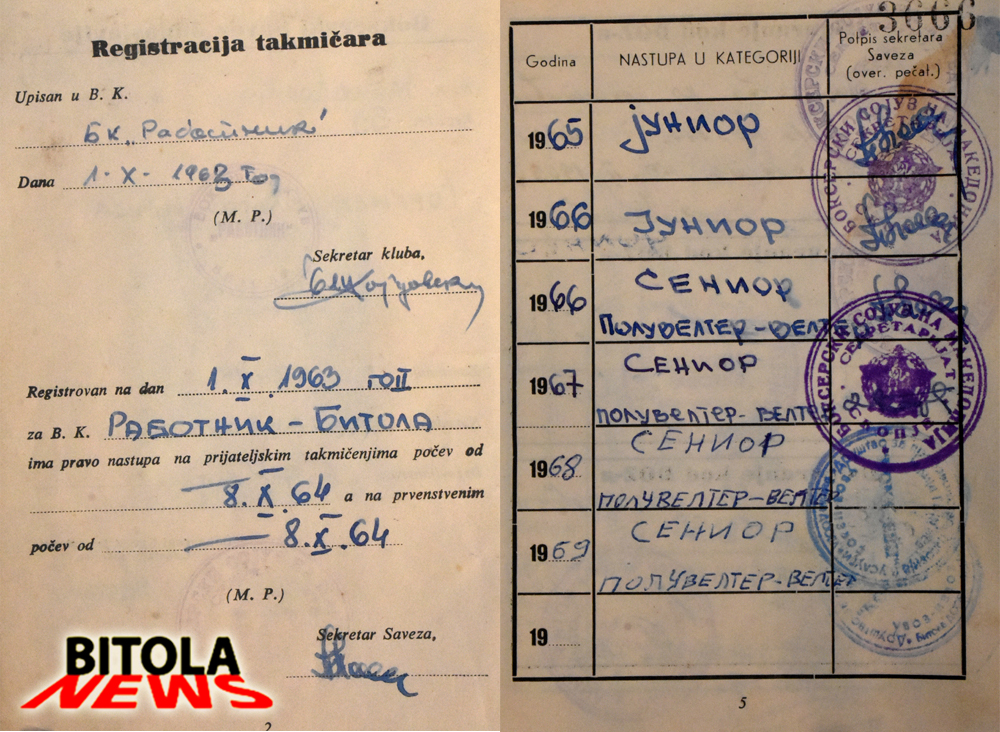 Registracija takmičara
Upisan u B. K.
БК „Работник"
Dana 1-X-1963 год
(M. P.)
Sekretar kluba,
Registrovan na dan 1. X. 1963 год
za B. K. РАБОТНИК - БИТОЛА
ima pravo nastupa na prijateljskim takmičenjima počev od
8. X. 64 a na prvenstvenim
počev od 8. X. 64
(M. P.)
Sekretar Saveza,
BITOLA
NEWS
2
3666
Godina NASTUPA U KATEGORIJI Potpis sekretara
Saveza
(over. pečat.)
1965 ЈУНИОР
1966 ЈУНИОР
1966 СЕНИОР
ПОЛУВЕЛТЕР-ВЕЛТЕР
1967 СЕНИОР
ПОЛУВЕЛТЕР-ВЕЛТЕР
1968 СЕНИОР
ПОЛУВЕЛТЕР-ВЕЛТЕР
1969 СЕНИОР
ПОЛУВЕЛТЕР-ВЕЛТЕР
19
БОКСЕРСКИ СОЈУЗ НА МАКЕДОНИЈА
СЕКРЕТАРИЈАТ
СКОПЈЕ
5